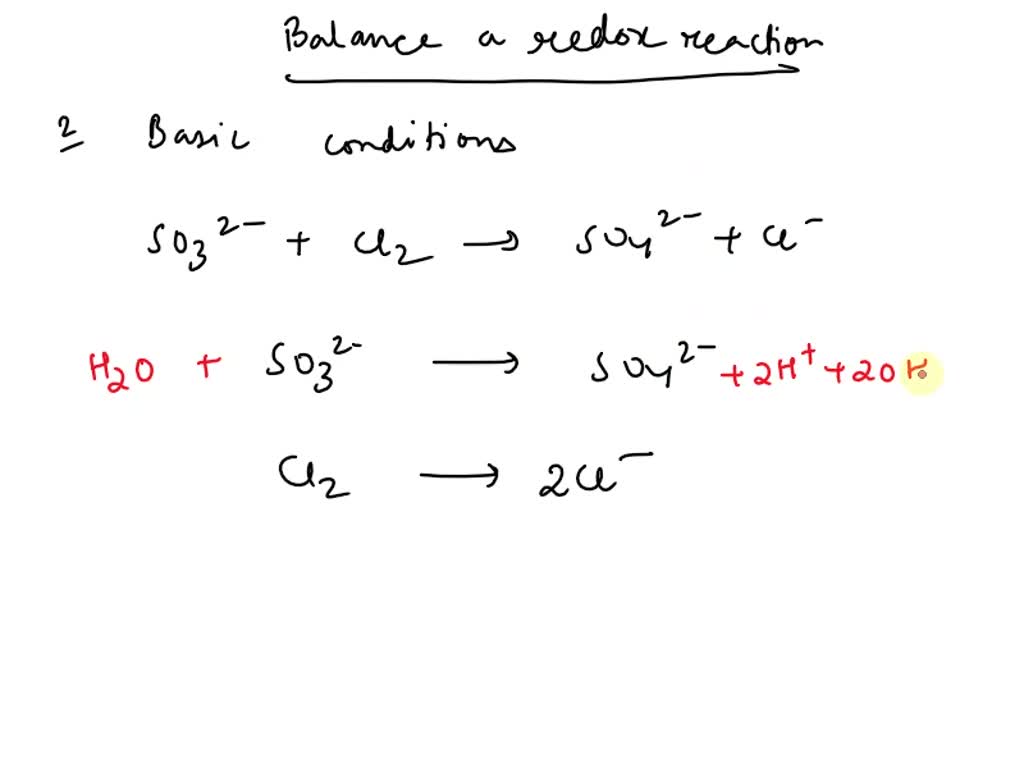 Balance a redox reaction
2 Basic conditions
SO₃²⁻ + Cl₂ → SO₄²⁻ + Cl⁻
H₂O + SO₃²⁻ → SO₄²⁻ + 2H⁺ + 2OH
Cl₂ → 2Cl⁻